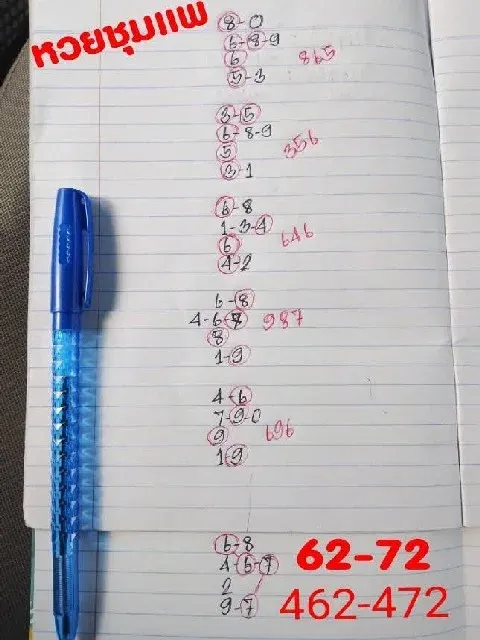 หวยชุมแพ
8-0
6-8-9
6
5-3
865
3-5
6-8-9
5
3-1
356
6-8
1-3-4
6
4-2
646
6-8
4-6-8
8
1-9
987
4-6
7-9-0
9
1-9
696
6-8
4-6-7
2
9-7
62-72
462-472